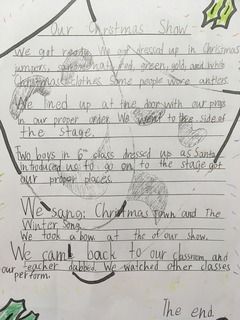 Our Christmas Show
We got ready. We got dressed up in Christmas
jumpers, hats, red, green, gold and white
Christmas clothes. Some people wore antlers.
We lined up at the door with our props
in our proper order. We went to the side of
the stage.
Two boys in 6th class dressed up as Santa
introduced us to go on to the stage got
our proper places.
We sang: Christmas Town and The
Winter Song.
We took a bow at the of our show.
We came back to our classroom and
our teacher dabbed. We watched other classes
perform.
The end.